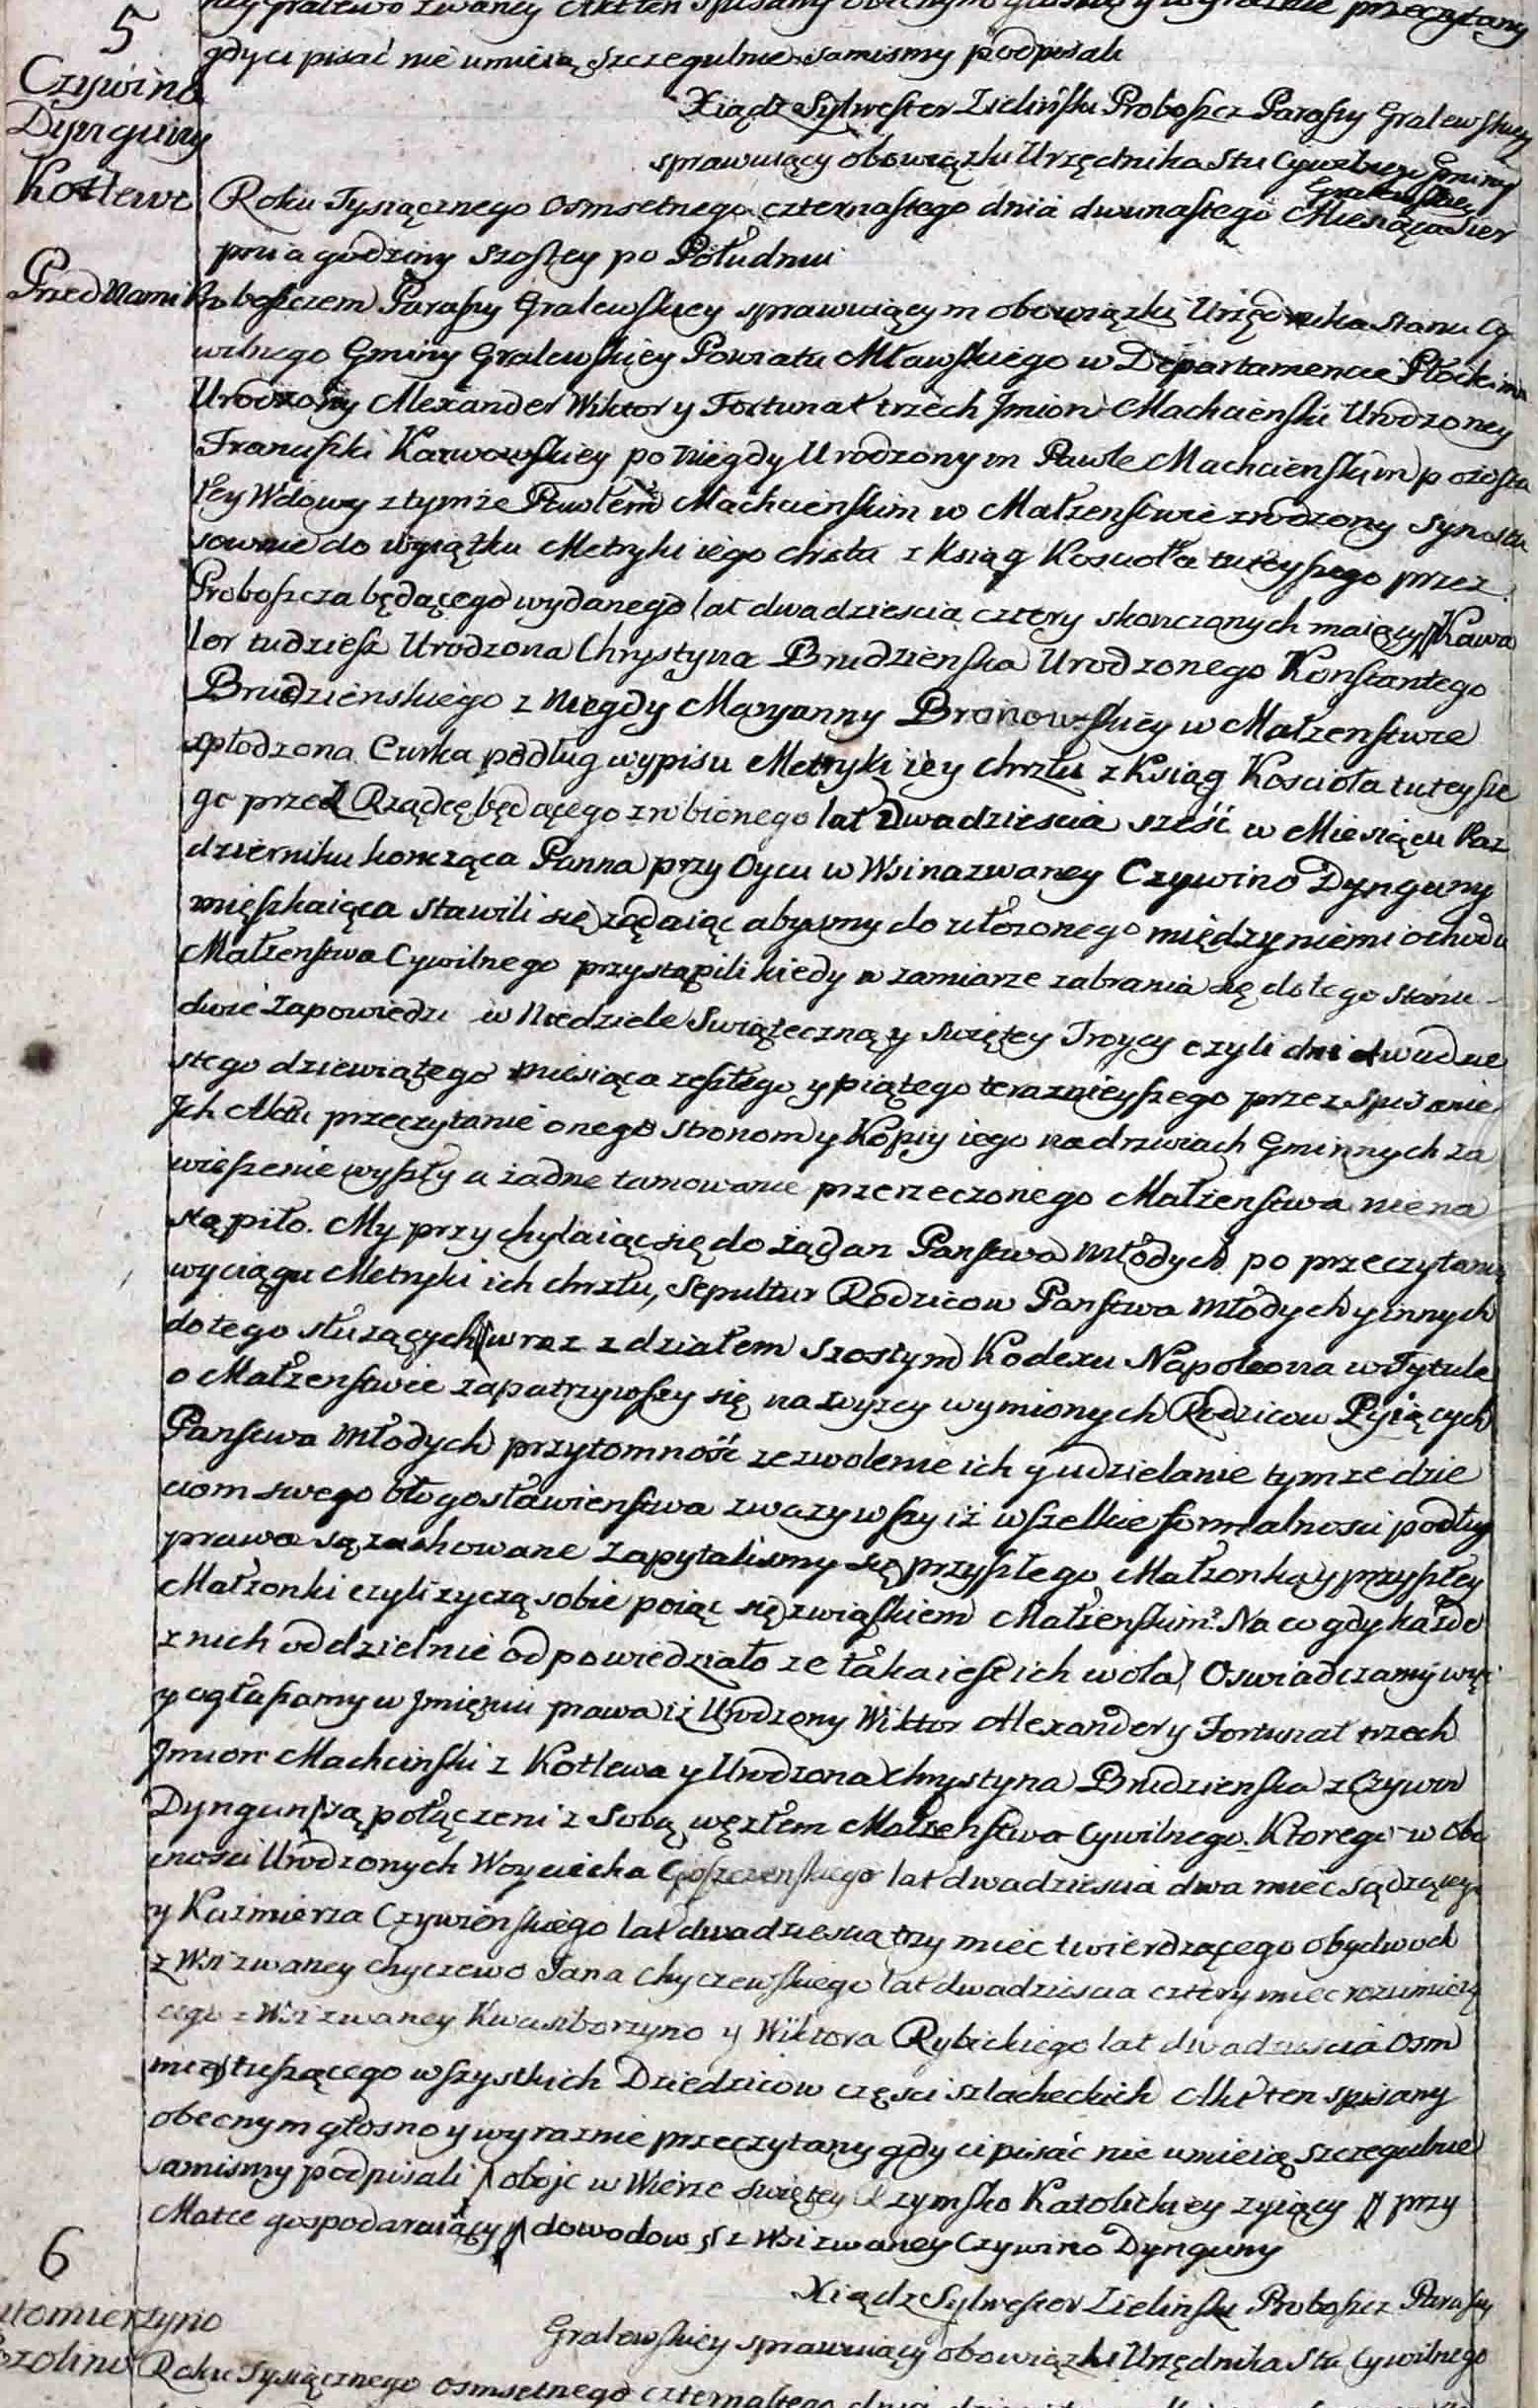 5
Czywino
Dynguny
Kotlewo
Przed Nami
gdy ci pisać nie umieią szczegulnie samismy podpisali
Xiądz Sylwester Zieliński Proboszcz Parafiy Gralewskiey
sprawuiący obowiązki Urzędnika Stu Cywilnego Gminy
Gralewskiey
Roku Tysiącznego osmsetnego czternastego dnia dwunastego Miesiąca Sier
pnia godziny szostey po Południu
Proboszczem Parafiy Gralewskiey sprawuiącym obowiązki Urzędnika Stanu Cy
wilnego Gminy Gralewskiey Powiatu Mławskiego w Departamencie Płockim
Urodzony Alexander Wiktor y Fortunat trzech Jmion Machcienski Urodzoney
Franciszki Karwowskiey po niegdy Urodzonym Pawle Machcienskim pozosta
łey Wdowy z tymże Pawłem Machcienskim w Małzenstwie zrodzony Syn stu
sownie do wyiątku Metryki iego chrztu z Ksiąg Koscioła tuteyszego przez
Proboszcza będącego wydanego lat dwadziescia cztery skonczonych maiący // Kawa
ler tudziesz Urodzona Chrystyna Brudzienska Urodzonego Konstantego
Brudzienskiego z niegdy Maryanny Bronowskiey w Małzenstwie
spłodzona Curka podług wypisu Metryki iey chrztu z Ksiąg Koscioła tuteysze
go przez Rządcę będącego zrobionego lat dwadziescia sześć w Miesiącu Paz
dzierniku koncząca Panna przy Oycu w Wsi nazwaney Czywino Dynguny
mięszkaiąca stawili się ządaiąc abysmy do ułozonego między niemi ochodu
Małzenstwa Cywilnego przystąpili kiedy w zamiarze zabrania się do tego stanu
dwie zapowiedzi w Niedziele Swiąteczną y Swiętey Troycy czyli dni dwudzie
stego dziewiątego miesiąca zeszłego y piątego teraznieyszego przez spisanie
Jch Aktu przeczytanie onego stronom y Kopiy iego na drzwiach Gminnych za
wieszenie wyszły a żadne tamowanie przerzeczonego Małzenstwa nie na
stąpiło. My przychylaiąc się do żądan Panstwa Młodych po przeczytaniu
wyciągu Metryki ich chrztu, Sepultur Rodzicow Panstwa młodych y innych
do tego słuzących // wraz z działem szostym Kodexu Napoleona w Tytule
o Małzenstwie zapatrzywszy się na wyzey wymionych Rodzicow Pyiących
Panstwa Młodych przytomność zezwolenie ich y udzielanie tymze dzie
ciom swego błogosławienstwa zwazywszy iż wszelkie formalnosci podług
prawa są zachowane zapytalismy się przyszłego Małzonka y przyszłey
Małzonki czyli zyczą sobie poiąc się związkiem Małzenskim? Na co gdy kazde
z nich oddzielnie odpowiedziało ze taka iest ich wola, Oswiadczamy więc
y ogłaszamy w Jmieniu prawa iż Urodzony Wiktor Alexander y Fortunat trzech
Jmion Machcinski z Kotlewa y Urodzona Chrystyna Brudzienska z Czywin
Dyngun są połączeni z Sobą węzłem Małzenstwa Cywilnego. Ktorego w obe
cnosci Urodzonych Woyciecha Goszczenskiego lat dwadziescia dwa miec sądzącego
y Kazimierza Czywienskiego lat dwadziescia trzy miec twierdzącego obydwoch
z Wsi zwaney Chyczewo Jana Chyczewskiego lat dwadziescia cztery miec rozumieią
cego z Wsi zwaney Kwasiborzyno y Wiktora Rybickiego lat dwadziescia Osm
miec tuszącego wszystkich Dziedzicow części szlacheckich Akt ten spisany
obecnym głosno y wyraznie przeczytany gdy ci pisać nie umieią szczegulnie
samismy podpisali / oboje w Wierze Swiętey Rzymsko Katolickiey zyiący // przy
Matce gospodaruiący // dowodow // z Wsi zwaney Czywino Dynguny
Xiądz Sylwester Zielinski Proboszcz Parafiy
Gralewskiey sprawuiący obowiązki Urzędnika Stu Cywilnego
6
Roku Tysiącznego osmsetnego czternastego dnia